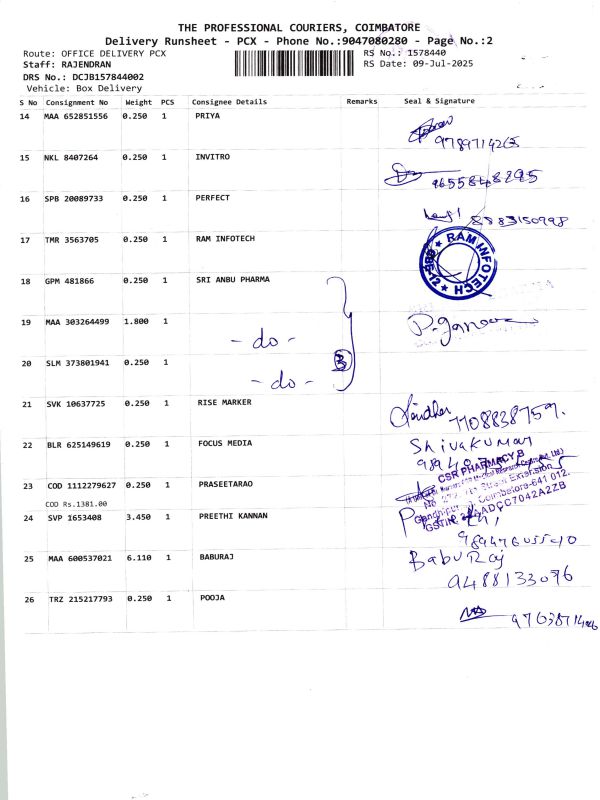 THE PROFESSIONAL COURIERS, COIMBATORE
Delivery Runsheet - PCX - Phone No.:9047080280 - Page No.:2
Route: OFFICE DELIVERY PCX RS No.: 1578440
Staff: RAJENDRAN RS Date: 09-Jul-2025
DRS No.: DCJB157844002
Vehicle: Box Delivery
S No Consignment No Weight PCS Consignee Details Remarks Seal & Signature
14 MAA 652851556 0.250 1 PRIYA
15 NKL 8407264 0.250 1 INVITRO
16 SPB 20089733 0.250 1 PERFECT
8883150998
17 TMR 3563705 0.250 1 RAM INFOTECH
RAM INFOTECH
18 GPM 481866 0.250 1 SRI ANBU PHARMA
19 MAA 303264499 1.800 1
- do -
3
20 SLM 373801941 0.250 1
- do -
21 SVK 10637725 0.250 1 RISE MARKER
7708838759.
22 BLR 625149619 0.250 1 FOCUS MEDIA Shivakumar
23 COD 1112279627 0.250 1 PRASEETARAO
CSR PHARMACY B
COD Rs.1381.00
24 SVP 1653408 3.450 1 PREETHI KANNAN
25 MAA 600537021 6.110 1 BABURAJ Babu Raj
9488133076
26 TRZ 215217793 0.250 1 POOJA